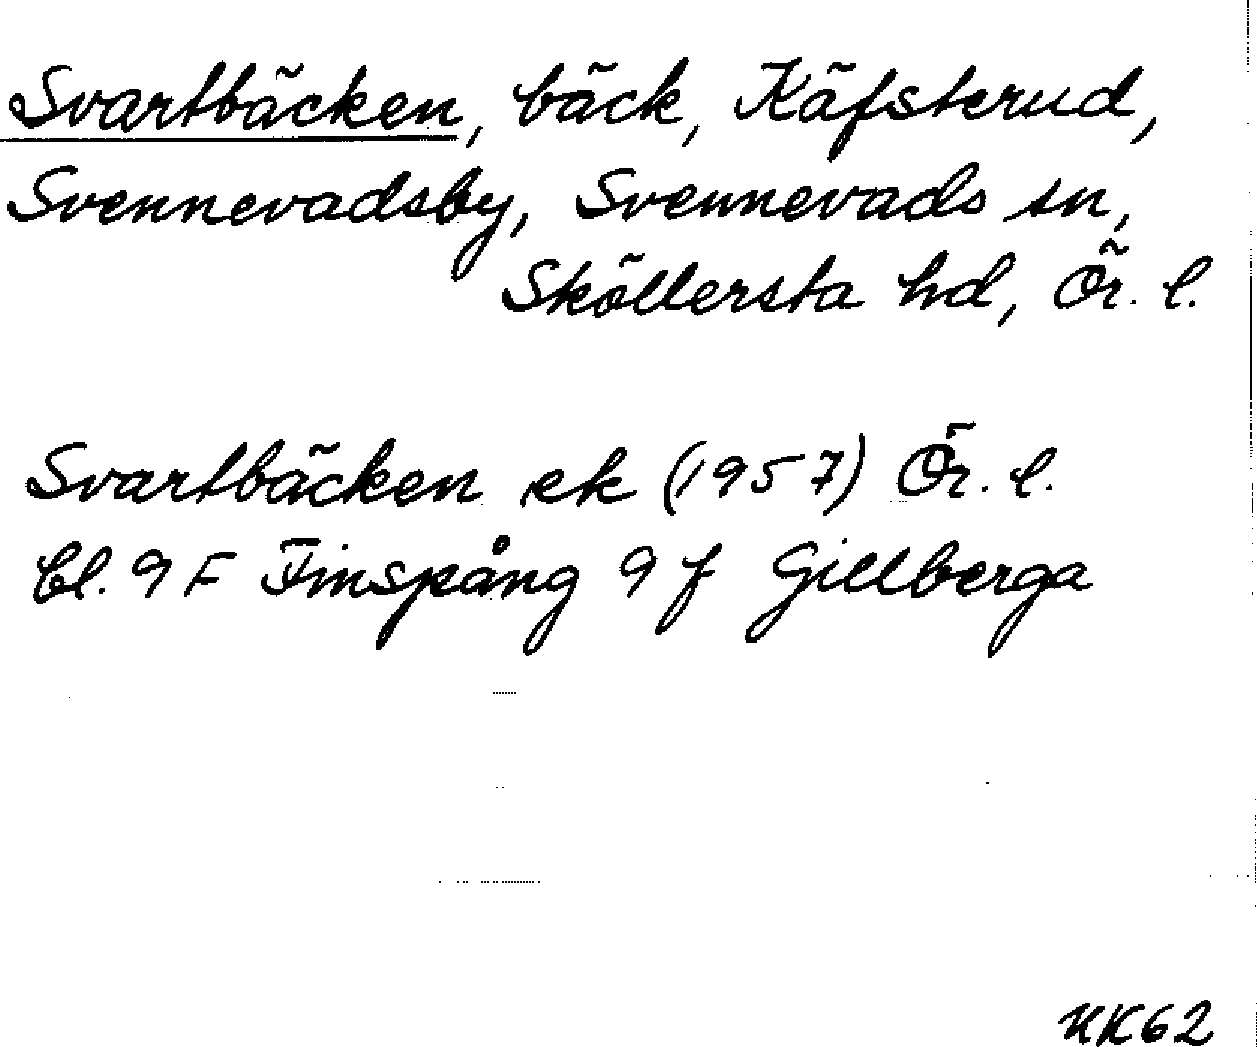 Svartbäcken, bäck, Käfsterud,
Svennevadsby, Svennevads sn,
Sköllersta hd, Ör. l.
Svartbäcken ek (1957) Ör. l.
bl. 9 F Finspång 9 f Gillberga
KK62